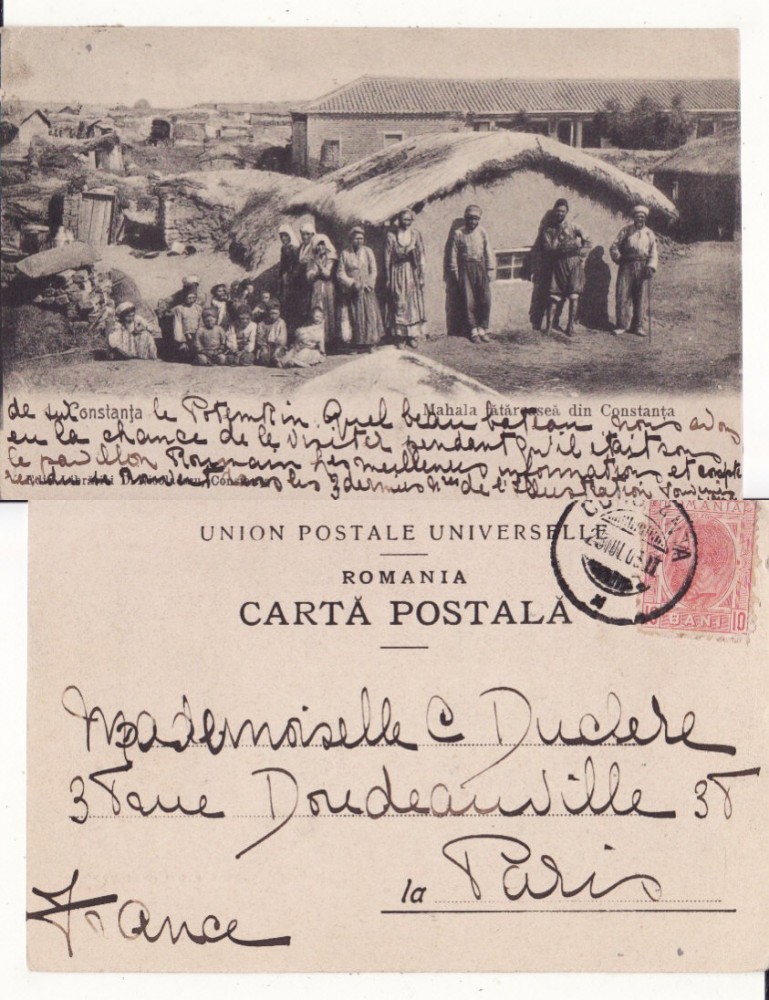 Constanța Mahala tătărească din Constanța
de sur le Potemkin. Quel beau bateau nous avons
eu la chance de le visiter pendant qu'il était sous
le pavillon Roumain les meilleures informations et compte
rendu se trouvent dans les 3 derniers Nos de l'Illustration
UNION POSTALE UNIVERSELLE
ROMANIA
ROMANIA
CARTĂ POSTALĂ
10 BANI 10
Mademoiselle C Duclere
rue Doudeauville
la Paris
France